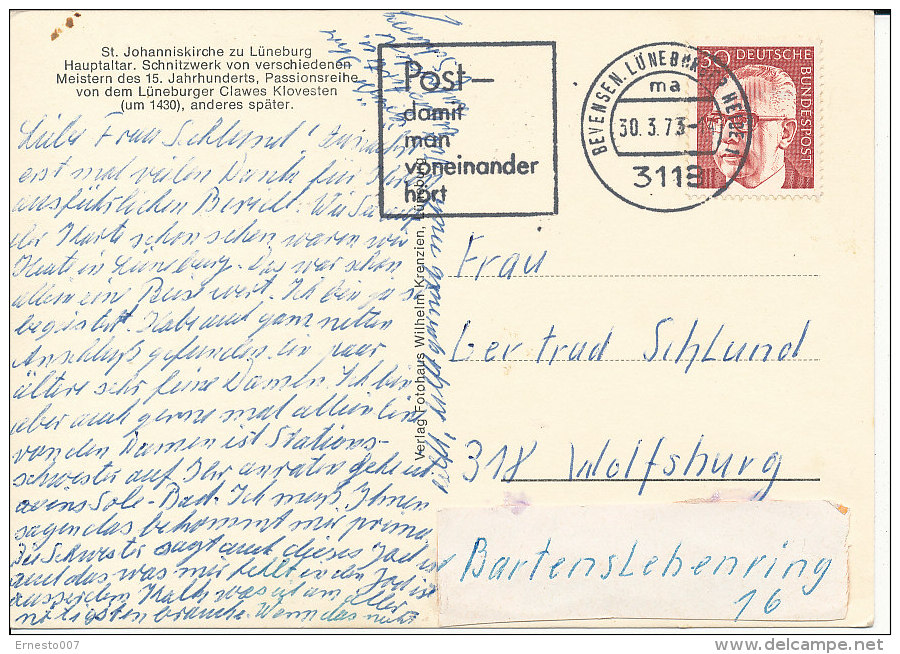 St. Johanniskirche zu Lüneburg
Hauptaltar. Schnitzwerk von verschiedenen
Meistern des 15. Jahrhunderts, Passionsreihe
von dem Lüneburger Clawes Klovesten
(um 1430), anderes später.
Liebe Frau Schlund! Zunächst
erst mal vielen Dank für Ihren
ausführlichen Bericht. Wie Sie auf
der Karte schon sehen, waren wir
Heute in Lüneburg. Das war schon
allein eine Reise wert. Ich bin ja so
begeistert. Habe auch ganz netten
Anschluß gefunden, ein paar
ältere sehr feine Damen. Ich bin
aber auch gerne mal allein. Eine
von den Damen ist Stations-
schwester auf Ihr anraten gehe ich
ins Sole-Bad. Ich muß Ihnen
sagen das bekommt mir prima
Die Schwester sagt auch dieses Jod ist
auch das was mir fehlt in den Jod ist
ausserdem Kalk was ich am aller
nötigsten brauche. Wenn das nicht
Verlag Fotohaus Wilhelm Krenzien, Lüneburg
Post-
damit
man
voneinander
hört
BEVENSEN, LÜNEBURGER HEIDE 1
ma
30.3.73-14
3118
30 DEUTSCHE BUNDESPOST
Frau
Gertrud Schlund
318 Wolfsburg
Bartenslebenring
16
Ernesto007
delcampe.net